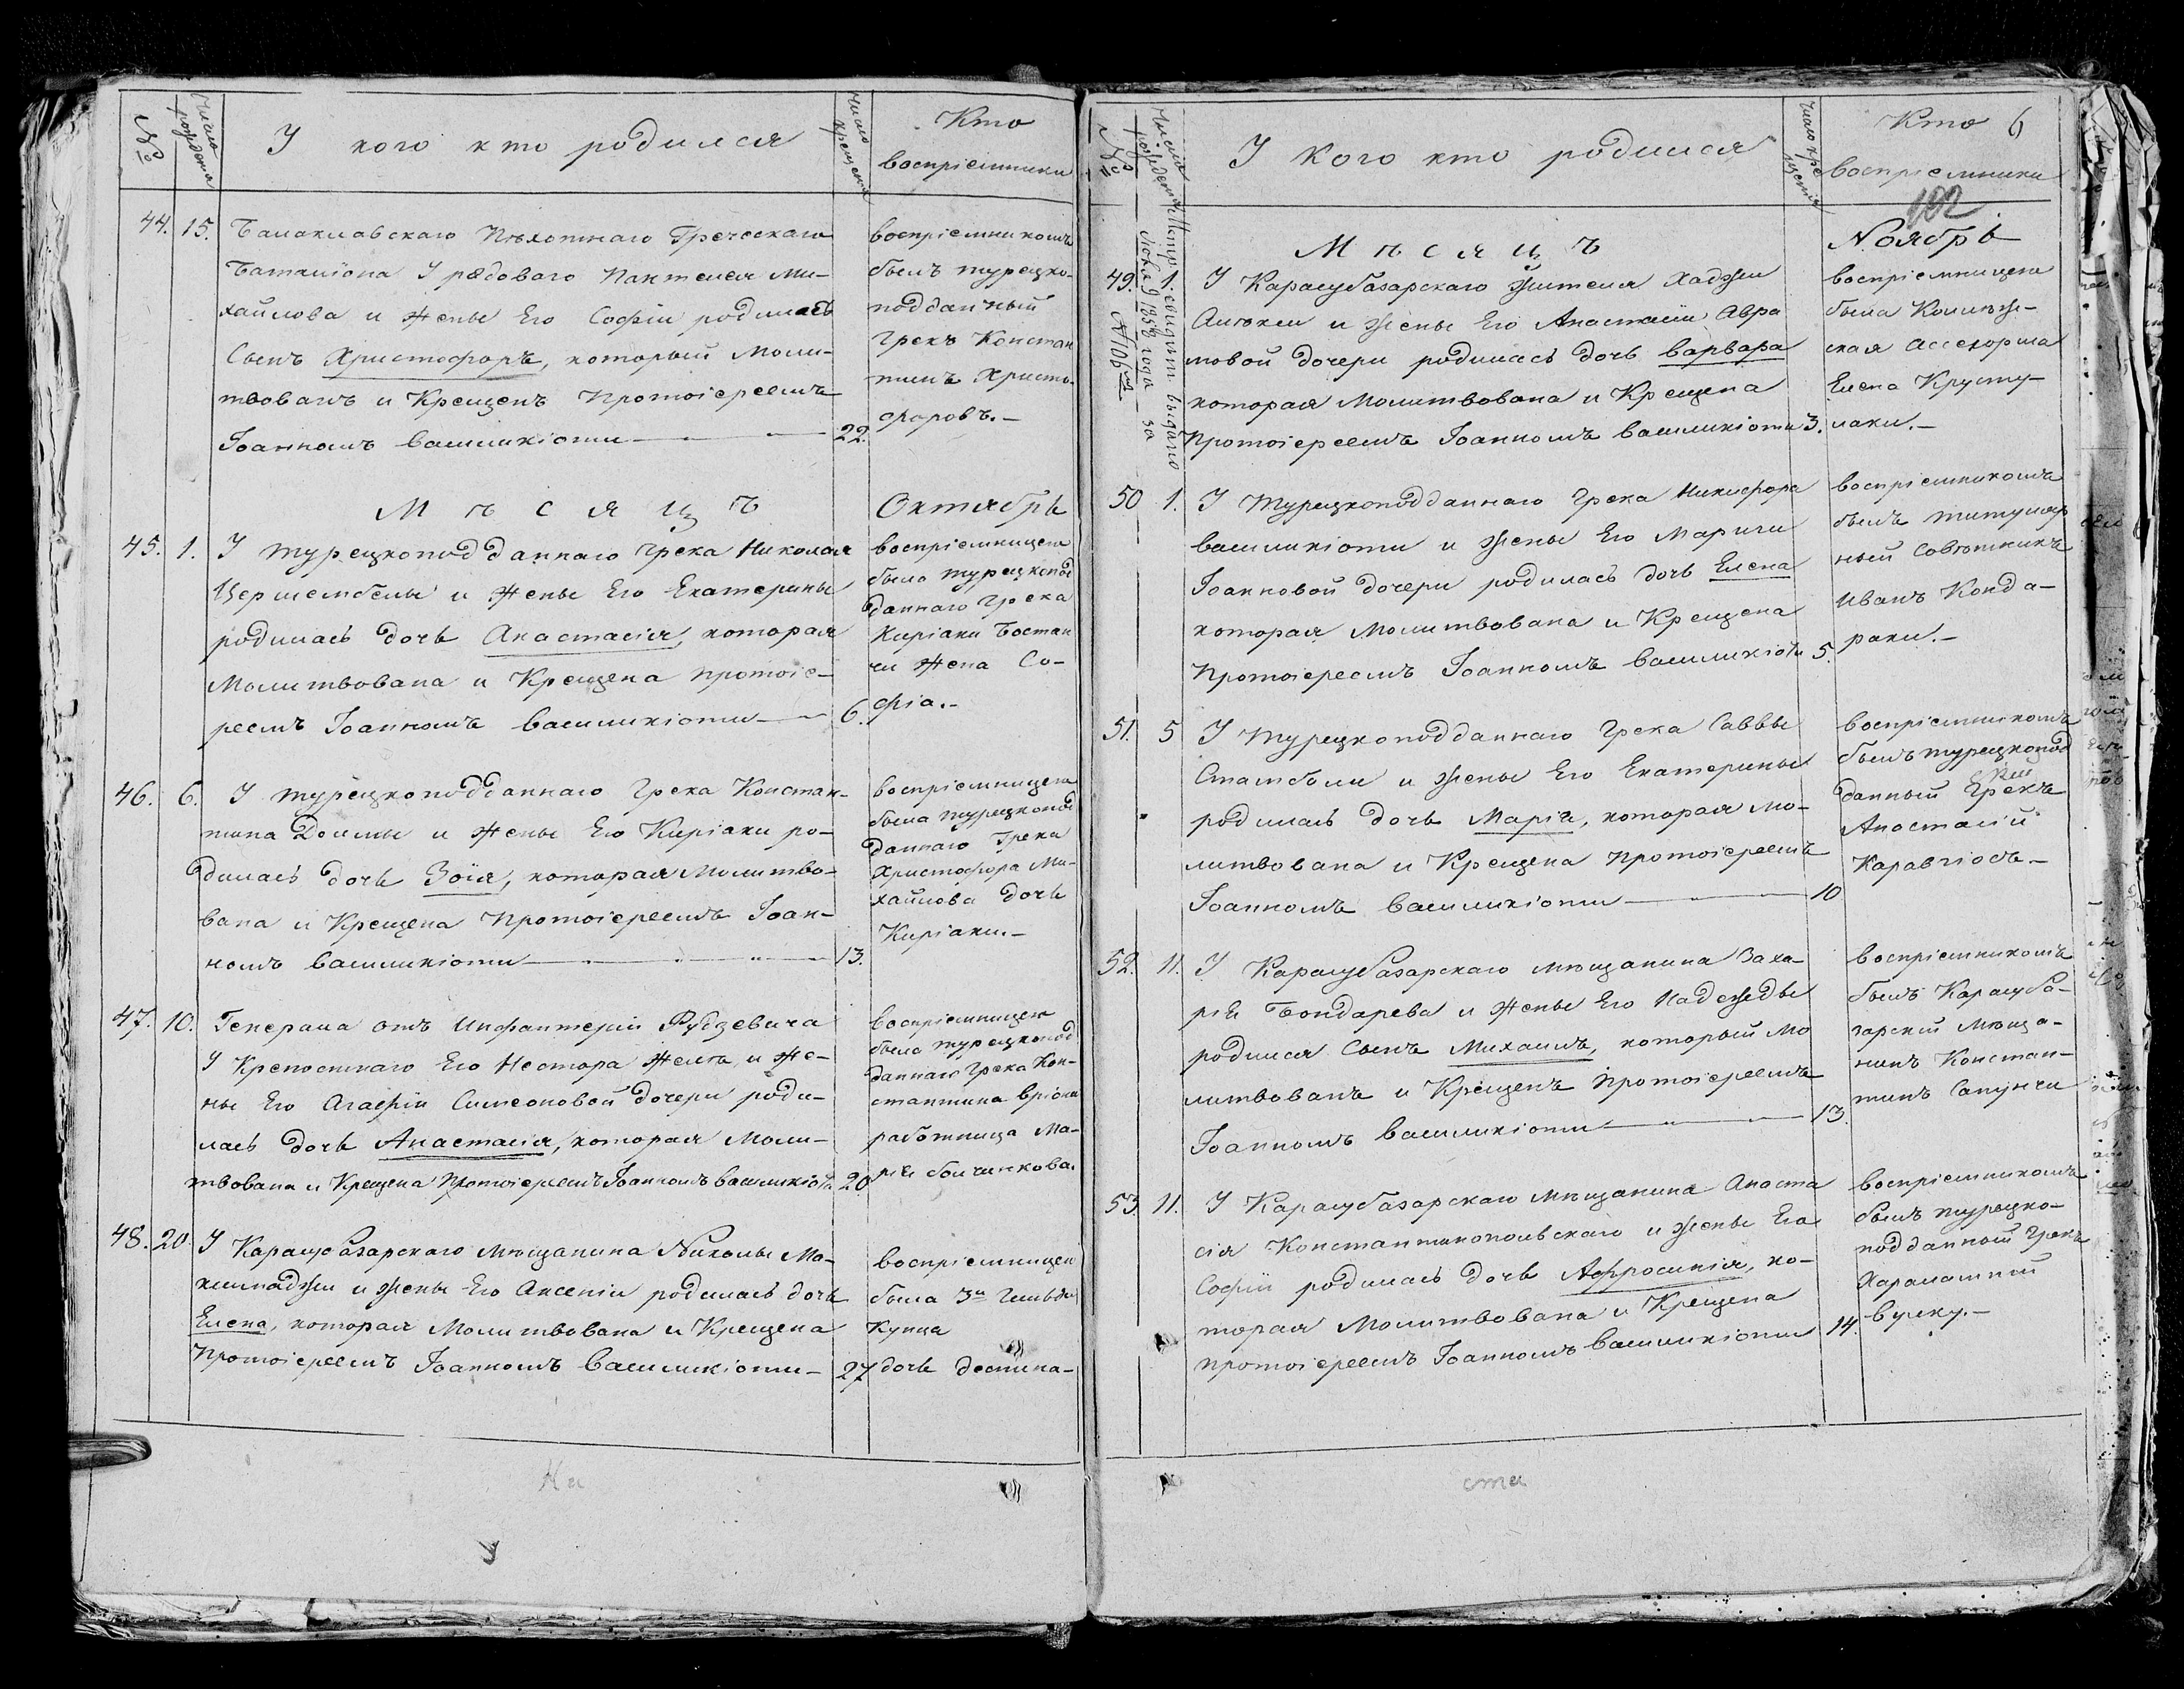 №
Число рожденія
У кого кто родился
Число крещенія
Кто
воспріемники
44. 15. Балаклавскаго Пѣхотнаго Греческаго
Баталіона У рядоваго Пантелея Ми-
хайлова и жены Его Софіи родилась
Сынъ Христофоръ, который Моли-
твованъ и Крещенъ Протоіереемъ
Іоанномъ Василикіоти 22.
воспріемникомъ
былъ турецко-
подданный
Грекъ Констан
тинъ Христо-
форовъ.-
Мѣсяцъ Октябрь
45. 1. У турецкоподданнаго Грека Николая
и жены Его Екатерины
родилась дочь Анастасія, которая
Молитвована и Крещена протоіе-
реемъ Іоанномъ Василикіоти 6.
воспріемницею
была турецкопод
даннаго Грека
Киріаки Бостан
чи жена Со-
фіа.-
46. 6. У турецкоподданнаго Грека Констан-
тина Долмы и жены Его Киріаки ро-
дилась дочь Зоія, которая Молитво-
вана и Крещена Протоіереемъ Іоан-
номъ Василикіоти 13.
воспріемницею
была турецкопод
даннаго Грека
Христофора Ми-
хайлова дочь
Киріаки.-
47. 10. Генерала отъ Инфантеріи Рудзевича
У Крепостнаго Его Нестора и же-
ны Его Агафіи Симеоновой дочери роди-
лась дочь Анастасія, которая Моли-
твована и Крещена Протоіереемъ Іоанномъ Василикіоти 20
воспріемницею
была турецкопод
даннаго Грека Кон-
стантина Вріони
работница Ма-
рія
48. 20. У Карасубазарскаго Мѣщанина Николы Ма-
и жены Его Аксеніи родилась дочь
Елена, которая Молитвована и Крещена
Протоіереемъ Іоанномъ Василикіоти 27
воспріемницею
была 3й Гильдіи
Купца
дочь Деспина-
На
№
Число рожденія
У кого кто родился
Число крещенія
Кто 6
воспріемники
102
Метр. свидит. выдано за
1858 года
№106
Мѣсяцъ Ноябрь
49. 1. У Карасубазарскаго жителя Хаджи
и жены Его Анастасіи Авра
мовой дочери родилась дочь Варвара
которая Молитвована и Крещена
Протоіереемъ Іоанномъ Василикіоти 3.
воспріемницею
была Коллѣж-
ская Ассесорша
Елена Крусту-
лаки.-
50 1. У Турецкоподданнаго Грека Никифора
Василикіоти и жены Его Маріи
Іоанновой дочери родилась дочь Елена
которая Молитвована и Крещена
Протоіереемъ Іоанномъ Василикіоти 5.
воспріемникомъ
былъ титуляр
ный Совѣтникъ
Иванъ Конда-
раки.-
51. 5 У Турецкоподданнаго Грека Саввы
Стамболи и жены Его Екатерины
родилась дочь Марія, которая мо-
литвована и Крещена Протоіереемъ
Іоанномъ Василикіоти 10
воспріемникомъ
былъ турецкопод
данный Грекъ
Анастасій
52. 11. У Карасубазарскаго мѣщанина Заха-
рія Бондарева и жены Его Надежды
родился Сынъ Михаилъ, который Мо
литвованъ и Крещенъ Протоіереемъ
Іоанномъ Василикіоти 13.
воспріемникомъ
былъ Карасуба-
зарскій Мѣща-
нинъ Констан-
тинъ Сапунчи
53. 11. У Карасубазарскаго Мѣщанина Анаста
сія Константинопольскаго и жены Его
Софіи родилась дочь Афросинія, ко-
торая Молитвована и Крещена
протоіереемъ Іоанномъ Василикіоти 14.
воспріемникомъ
былъ турецко-
подданный Грекъ
Харалампій
Вуеку.-
ста